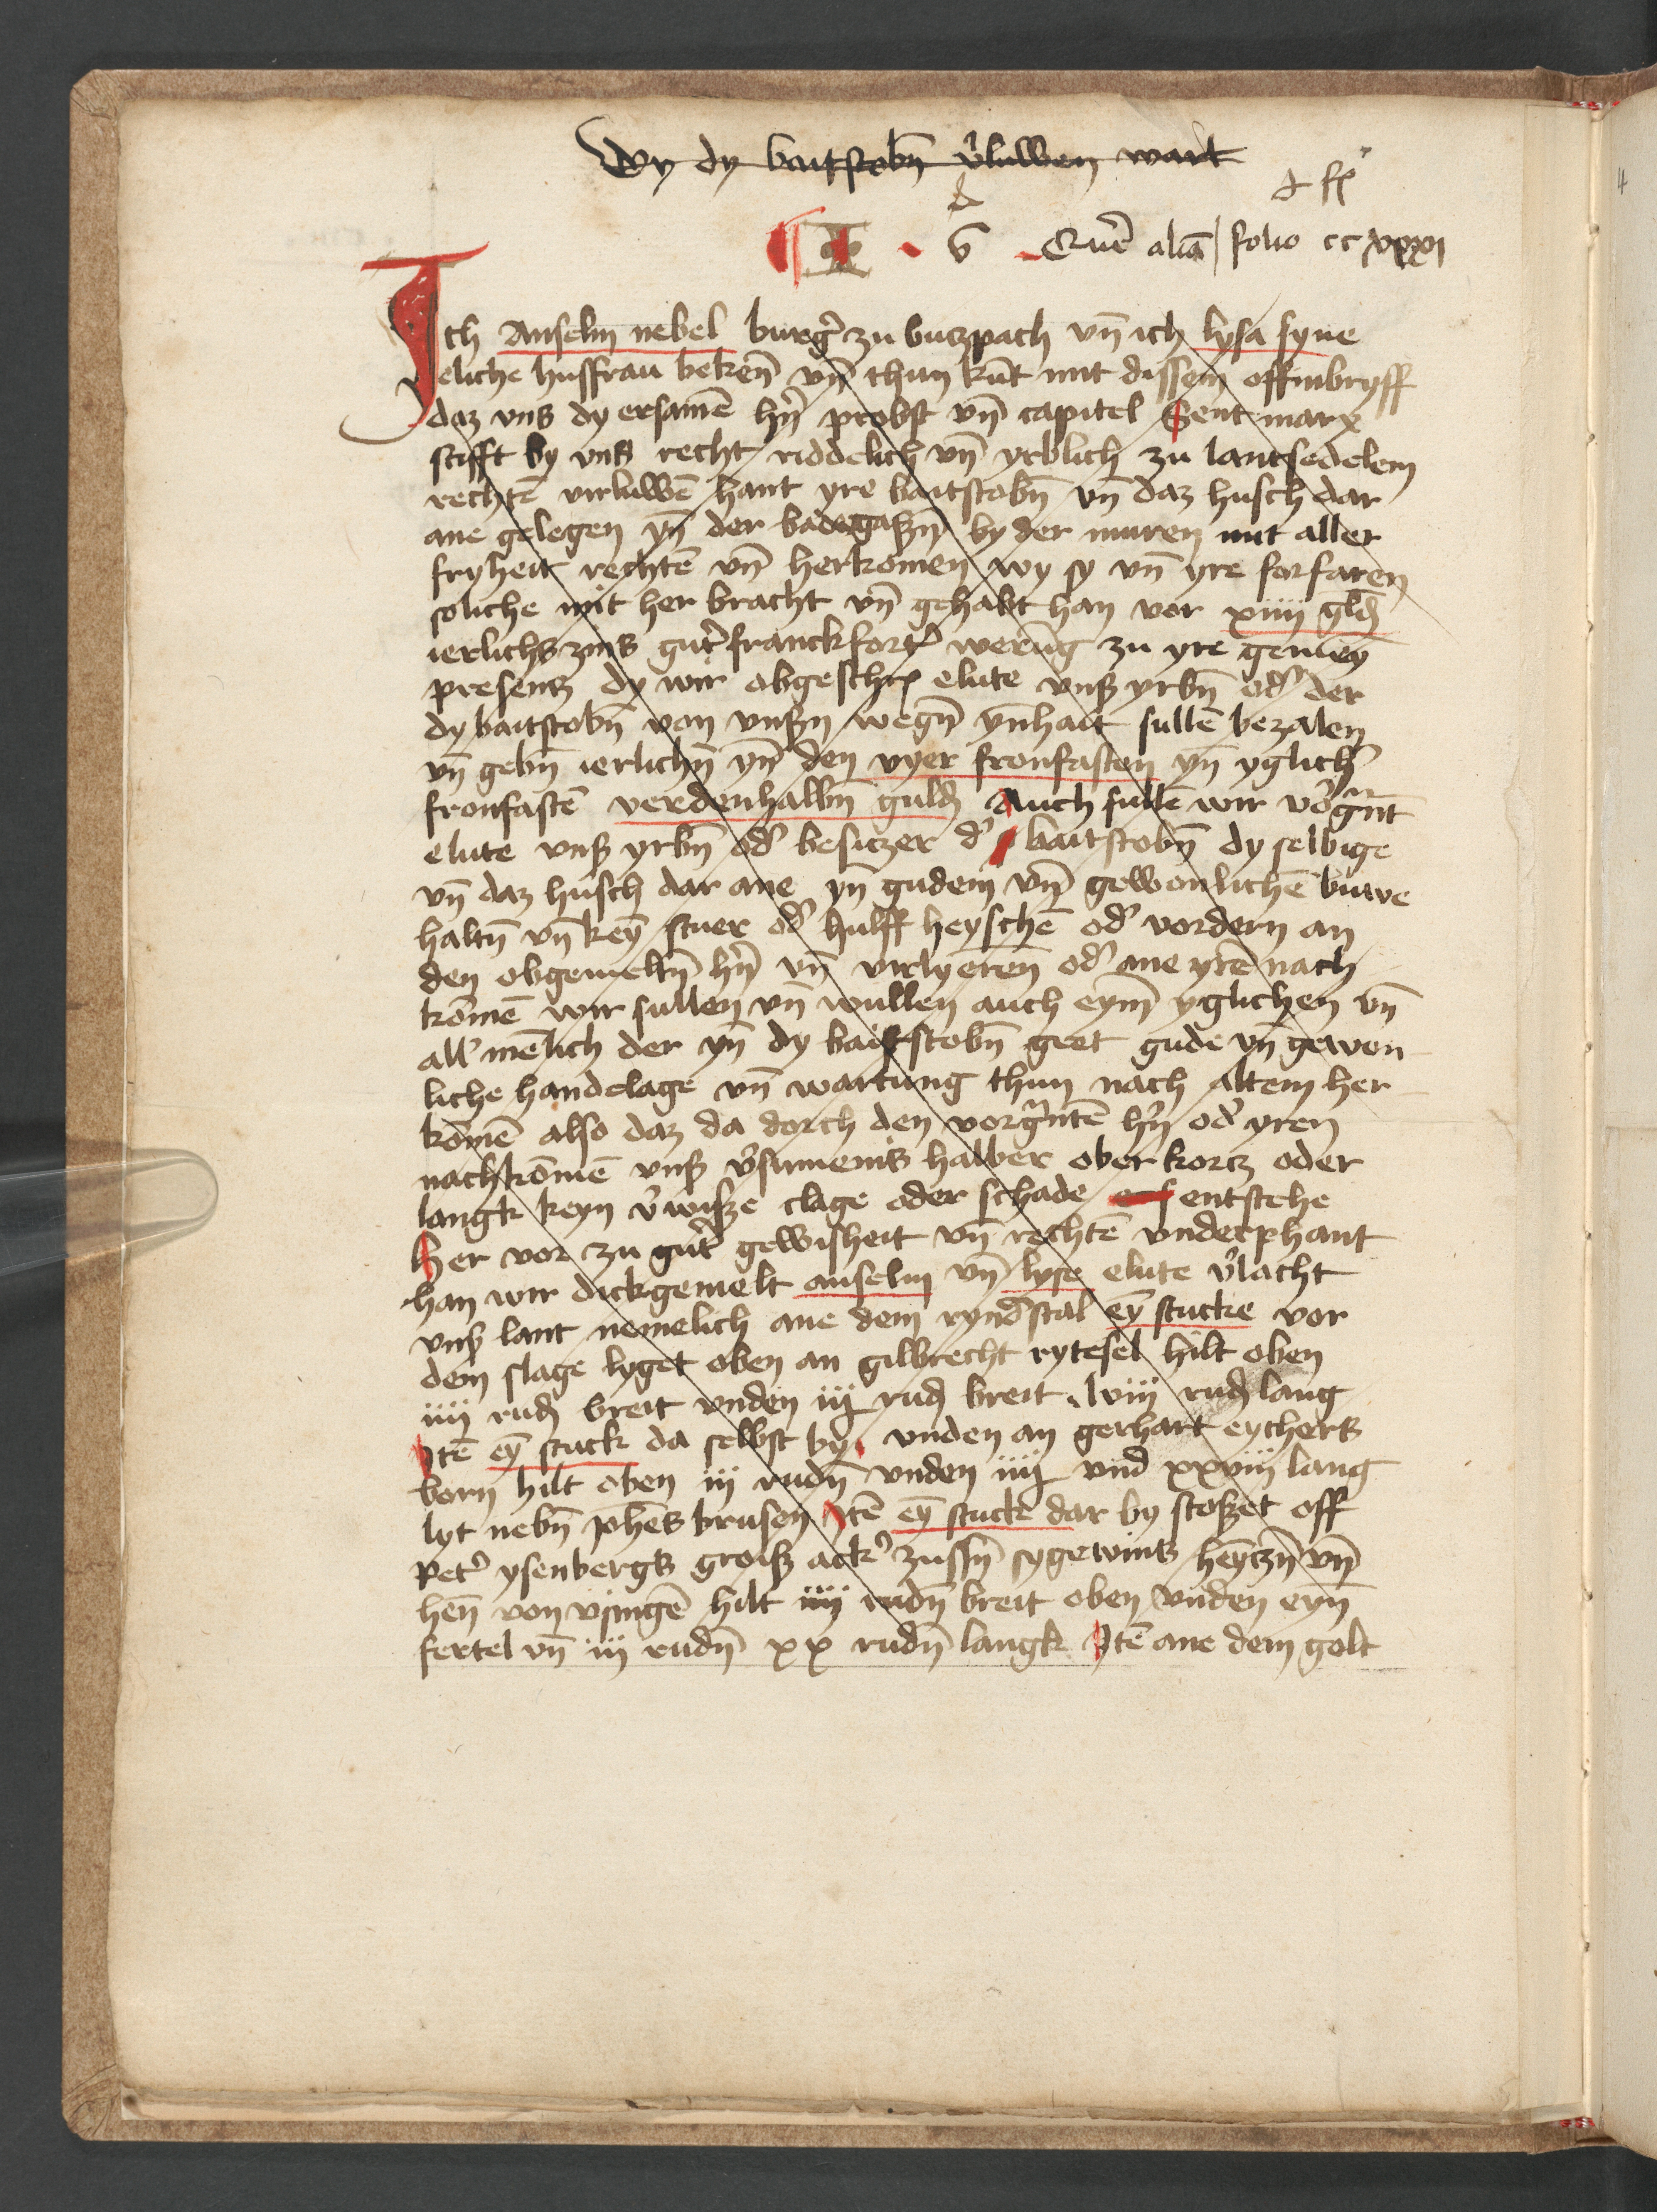 Wy dy baitstobn̄ v̾luwen wart
Qurē aliā folio cc xxxi
Ich Anselm nebel burg̾ zu butzpach vn̄ ich lysa syne
eliche husfrau bekēn vn̄ thun kūt mit dissem offinbryff
daz vns dy ersamē hn̄ probst vn̄ capitel Sent marx
stifft by vns recht riddelich vn̄ yrblich zu lantsedelem
rechtē virluwē hant yre baitstobn̄ vn̄ daz husch dar
ane gelegen yn̄ der badegaßn̄ by der muren mit aller
fryheit rechtē vn̄ herkomen wy sy vn̄ yre forfaren
soliche mit her bracht vn̄ gehabt han vor xiiij gld
ierlichs zins gut̾ franckfort̾ werūg zu yre gemey̅
presentz dy wir obgeschr̾ elute vnß yrbn̄ od̾ der
dy baitstobn̄ von vnßn wegn̄ yn̄hait sullē bezalen
vn̄ gebn̄ ierlichn̄ yn̄ den vyer fronfasten yn̄ yglich̾
fronfastē verdenhalbn̄ guld Auch sullē wir vorg̅nt
elute vnß yrbn̄ od̾ besiczer d̾ baitstobn̄ dy selbige
vn̄ daz husch dar ane yn̄ gudem vn̄ gewonlichē buwe
haltn̄ vn̄ key̅ stuer od̾ hulff heyschē od̾ vordern an
den obgemeltn̄ hn̄ vn̄ virlyeren̄ od̾ ane yrē nach
kōmē wir sullen vn̄ wullen auch eym̄ yglichen vn̄
all̾ mēlich der yn̄ dy baitstobn̄ geet gude vn̄ gewon
liche handelage vn̄ wartung thun nach altem her
kōmē also daz da dorch den vorg̅ntē hn̄ od̾ yren
nachkōmē vnß v̾sumenis halber ober kortz oder
langk keyn v̾wiße clage oder schade entstehe
Her vor zu gut̾ gewisheit vn̄ rechtē vnderphant
han wir dickgemelt anselm vn̄ lyse elute v̾lacht
vnß lant nemelich ane dem rynd̾stal ey̅ stucke vor
dem slage lyget oben an gilbrecht rytesel hilt oben
iiij rud breit vnden iij rud breit lviij rud lang
Itē ey̅ stuck da selbst by vnden an gerhart eycherts
born hilt oben iij rudn̄ vnden iiij vnd xxviij lang
lyt nebn̄ Joh̅es krusen Itē ey̅ stuck dar by stoßet off
Pet̾ ysenbergs groiß ack̾ zussn̄ sygewins heyczn̄ vn̄
hen̄ von vsingē hilt iiij rudn̄ breit oben vnden eyn̄
fertel vn̄ iij rudn̄ xx rudn̄ langk Itē ane dem golt